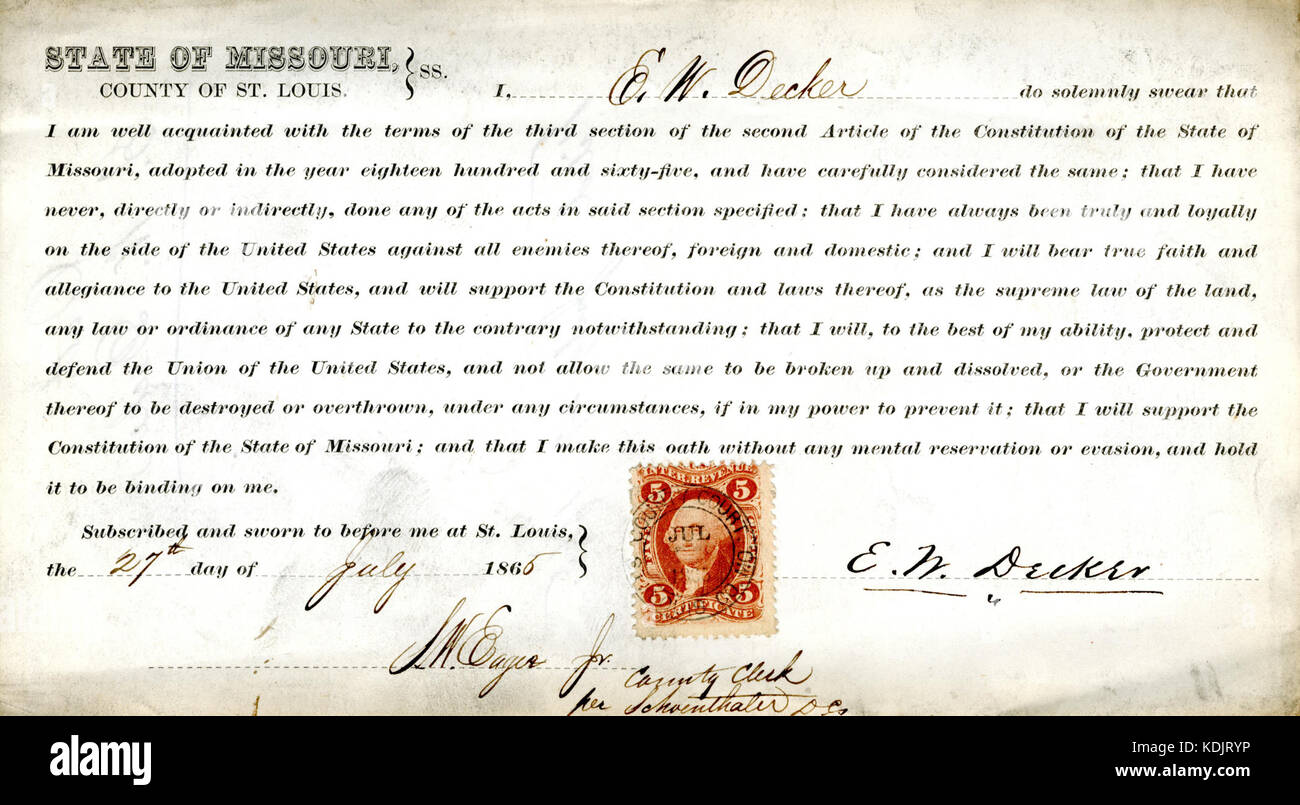 STATE OF MISSOURI,
COUNTY OF ST. LOUIS.
SS.
I, E. W. Decker do solemnly swear that
I am well acquainted with the terms of the third section of the second Article of the Constitution of the State of
Missouri, adopted in the year eighteen hundred and sixty-five, and have carefully considered the same; that I have
never, directly or indirectly, done any of the acts in said section specified; that I have always been truly and loyally
on the side of the United States against all enemies thereof, foreign and domestic; and I will bear true faith and
allegiance to the United States, and will support the Constitution and laws thereof, as the supreme law of the land,
any law or ordinance of any State to the contrary notwithstanding; that I will, to the best of my ability, protect and
defend the Union of the United States, and not allow the same to be broken up and dissolved, or the Government
thereof to be destroyed or overthrown, under any circumstances, if in my power to prevent it; that I will support the
Constitution of the State of Missouri; and that I make this oath without any mental reservation or evasion, and hold
it to be binding on me.
Subscribed and sworn to before me at St. Louis,
the 27th day of July 1865
INTER. REVENUE
5 5
COUNTY COURT
JUL
5 5
CERTIFICATE
E. W. Decker
S.W. Eager Jr.
County Clerk
per Schoenthaler
alamy
Image ID: KDJRYP
www.alamy.com